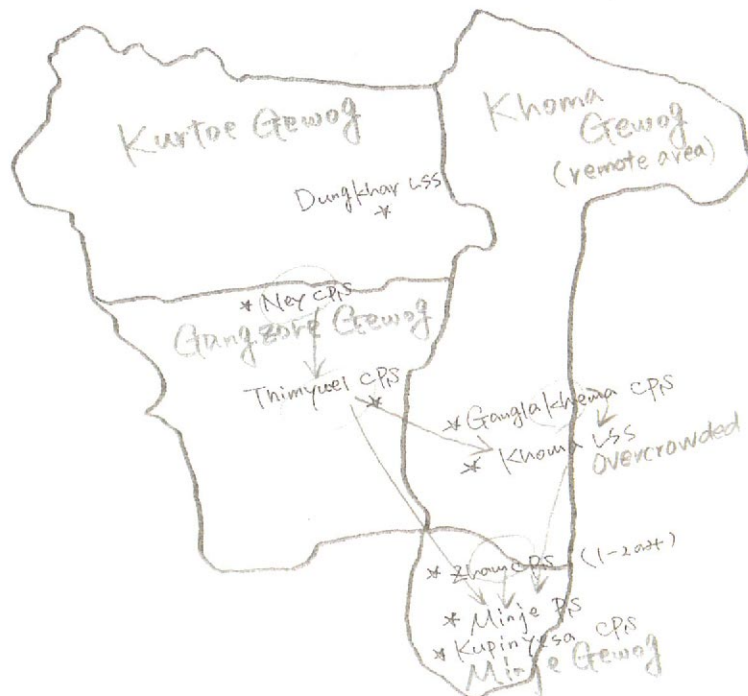 Kurtoe Gewog
Khoma
Gewog
(remote area)
Dungkhar LSS
Ney CPS
Gangzore Gewog
Thimyuel CPS
Ganglakhema CPS
Khoma LSS
Overcrowded
Zham CPS
Minje PS
Kupinyesa CPS
Minje Gewog